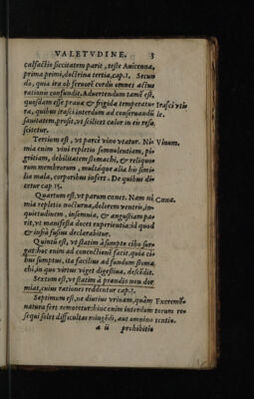 VALETVDINE. 3
calfactio siccitatem parit, teste Auicenna,
prima primi, doctrina tertia, cap. 1. Secun
do, quia ira ob feruorē cordis omnes actus
rationis confundit. Aduertendum tamē est,
quosdam esse praua & frigida temperatur Irasci vtile
ra, quibus irasci interdum ad conseruandū
sanitatem, prosit, vt scilicet calor in eis resu
scitetur.
Tertium est, vt parcè vino vtatur. Ni Vinum.
mia enim vini repletio somnolentiam, pi
gritiam, debilitatem stomachi, & reliquo
rum membrorum, multáque alia his simi
lia mala, corporibus infert. De quibus di
cetur cap. 15.
Quartum est, vt parum cœnet. Nam ni Cœna.
mia repletio nocturna, dolorem ventris, in
quietudinem, insomnia, & angustiam pa
rit, vt manifesta docet experientia: id quod
& infrà fusius declarabitur.
Quintū est, vt statim à sumpto cibo sur
gat: hoc enim ad concoctionē facit, quia ci
bus sumptus, ita facilius ad fundum stoma
chi, in quo virtus viget digestiua, descēdit.
Sextum est, vt statim à prandio non dor
miat, cuius rationes reddentur cap. 3.
Septimum est, ne diutius vrinam, quàm Excremē
natura fert remoretur: hoc enim interdum
sequi solet difficultas mingēdi, aut omnino
a ii prohibitio